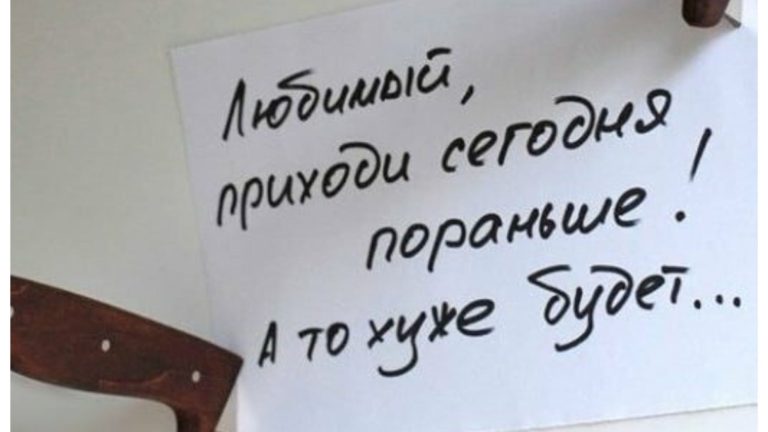 Любимый,
приходи сегодня
пораньше!
А то хуже будет...